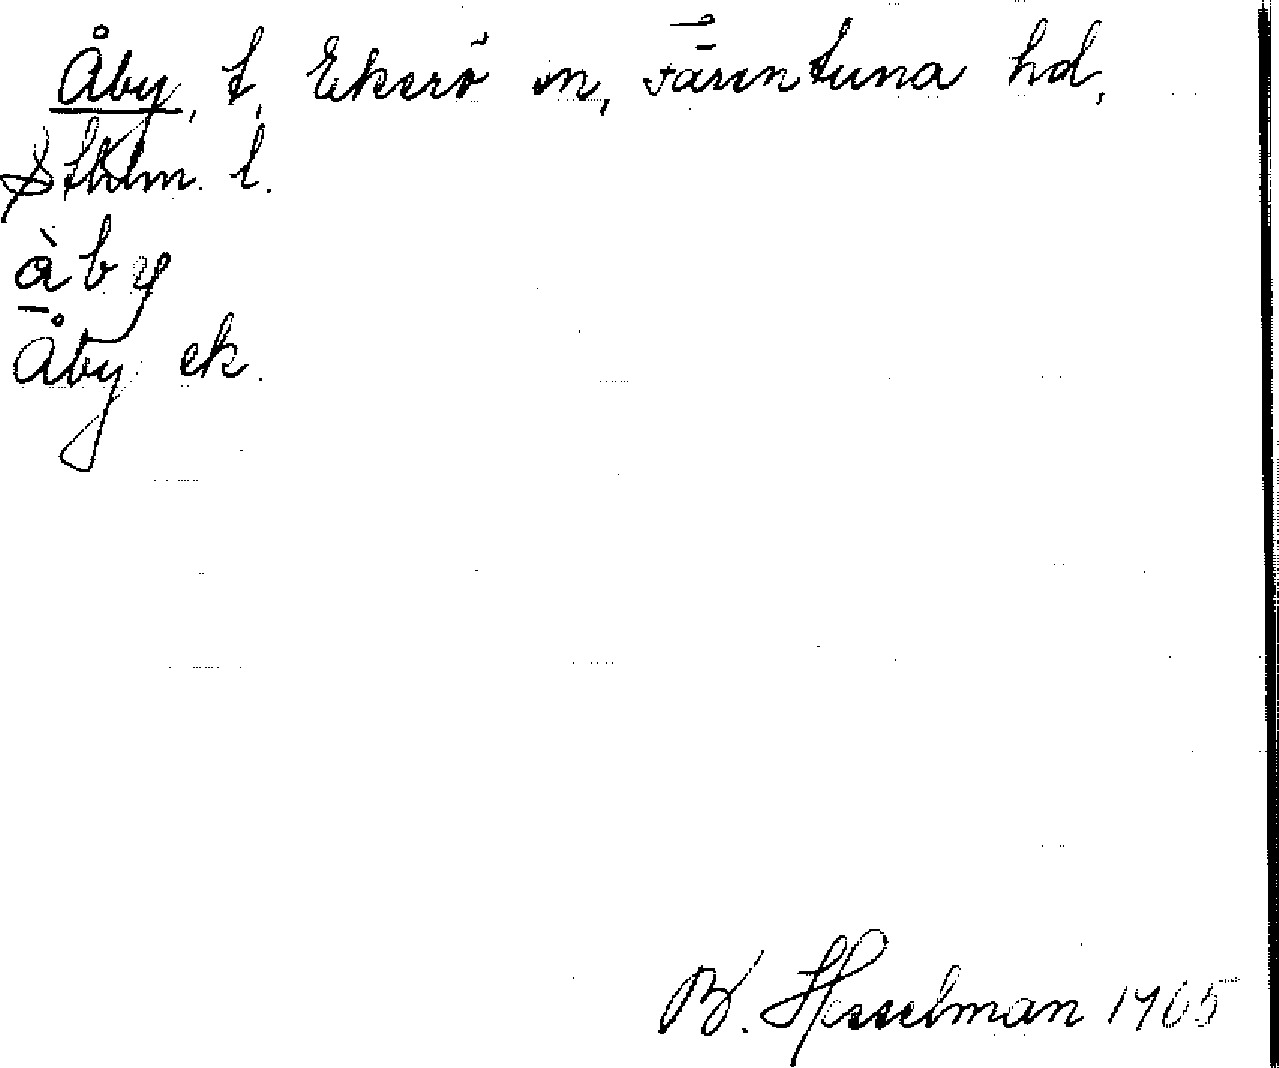 Åby, t. Ekerö sn, Färentuna hd,
Sthlm. l.
àby
Åby ek.
B. Hesselman 1905